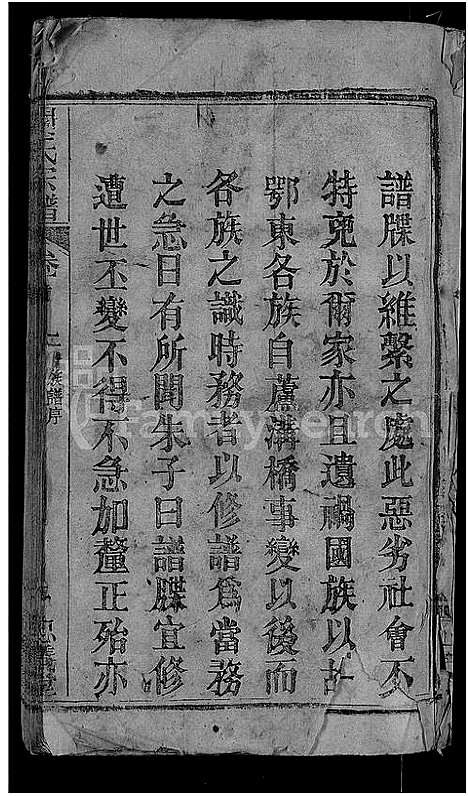 譜牒以維繫之處此惡劣社會不
特兇於爾家亦且遺禍國族以故
鄂東各族自蘆溝橋事變以後而
各族之識時務者以修譜爲當務
之急日有所聞朱子曰譜牒宜修
遭世丕變不得不急加釐正殆亦
氏宗譜
卷
族譜序
FamilySearch